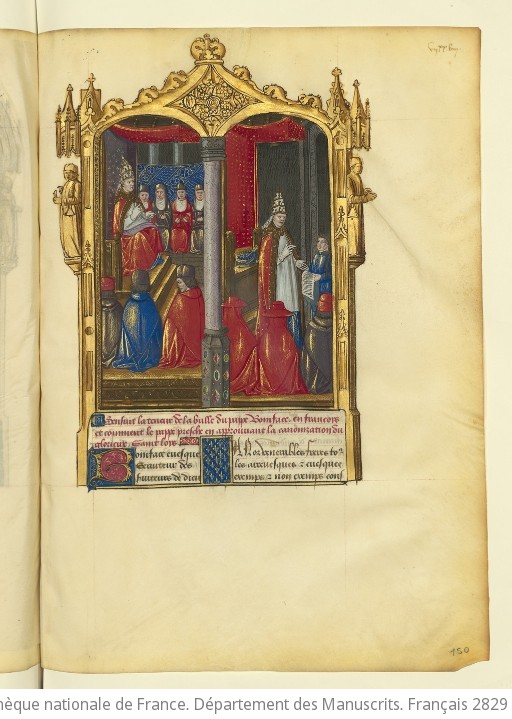 Ensuit la teneur de la bulle du pape Boniface en francois
et comment le pappe presche en approuvant la canonization du
glorieux Saint loys
Boniface evesque
Serviteur des
serviteurs de dieu
A Noz venerables freres to9
les arcevesques & evesques
exemps & non exemps cons
150
hèque nationale de France. Département des Manuscrits. Français 2829